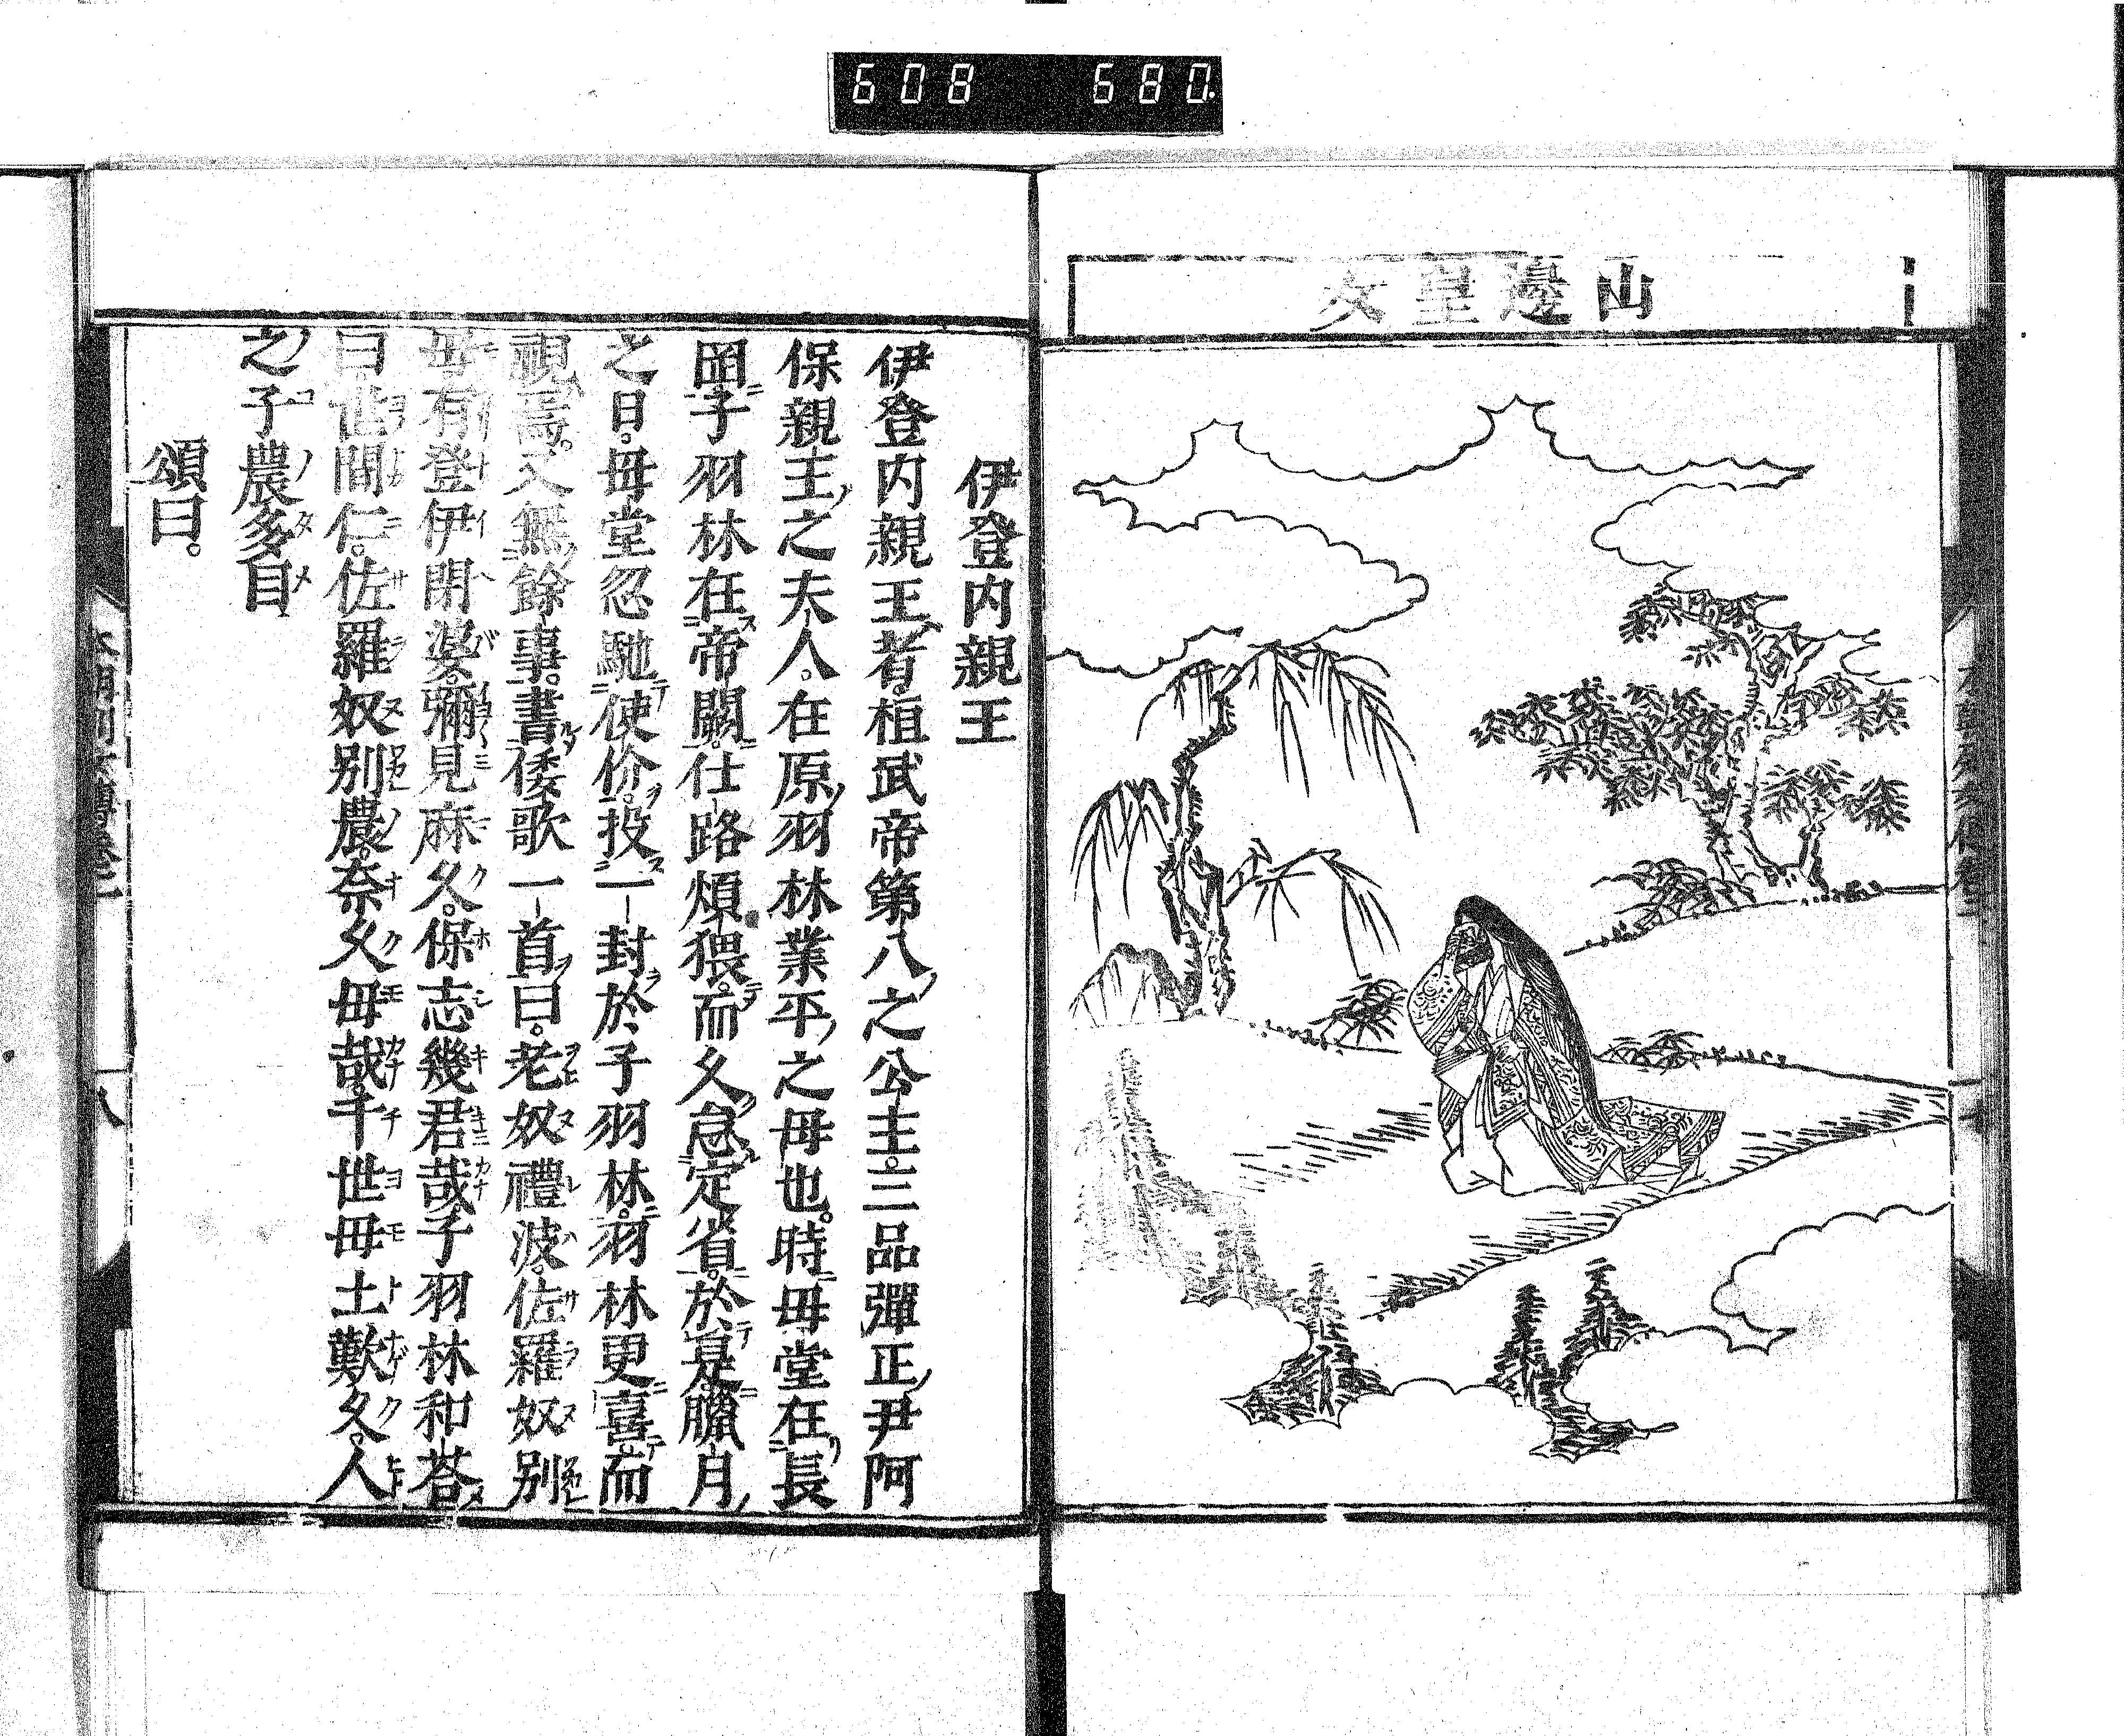 608 680
山邊皇女
伊登内親王
伊登内親王者。桓武帝第八之公主。三品彈正尹阿
保親王之夫人。在原羽林業平之母也。時母堂在長
岡。子羽林在帝闕。仕路煩猥。而久怠定省。於是臘月
之日。毋堂忽馳使价。投一封於子羽林。羽林更喜而
視焉。又無餘事。書倭歌一首曰。老奴禮波。佐羅奴別
毋有登伊閉婆。彌見麻久。保志幾君哉。子羽林和荅
曰。世間仁。佐羅奴別農。奈久毋哉。千世毋土歎久。人
之子農多目
頌曰。